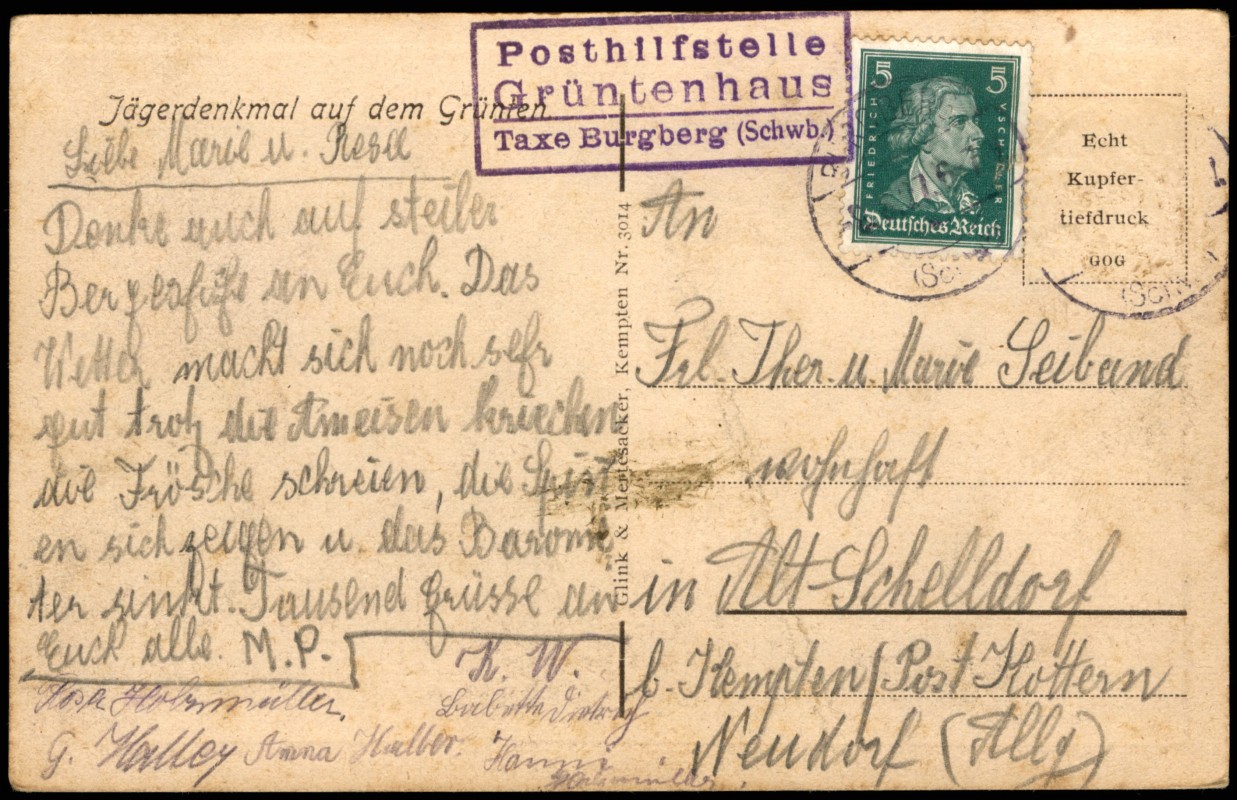 Posthilfstelle
Grüntenhaus
Taxe Burgberg (Schwb.)
Jägerdenkmal auf dem Grünten.
Liebe Marie u. Resel
Denke auch auf steiler
Bergeshöhe an Euch. Das
Wetter macht sich noch sehr
gut trotz die Ameisen kriechen
die Frösche schreien, die Spitz
en sich zeigen u. das Barome
ter sinkt. Tausend Grüsse an
Euch alle. M.P.
K. W.
Rosa Holzmüller.
Babette Dietrich
G. Halley Anna Halber.
Hanni
Glink & Mertesacker, Kempten Nr. 3014
5 5
FRIEDRICH V SCHILLER
Deutsches Reich
Echt
Kupfer-
tiefdruck
GOG
An
Frl. Ther. u. Marie Seiband
wohnhaft
in Alt-Schelldorf
b. Kempten / Post Kottern
Neudorf (Allg)